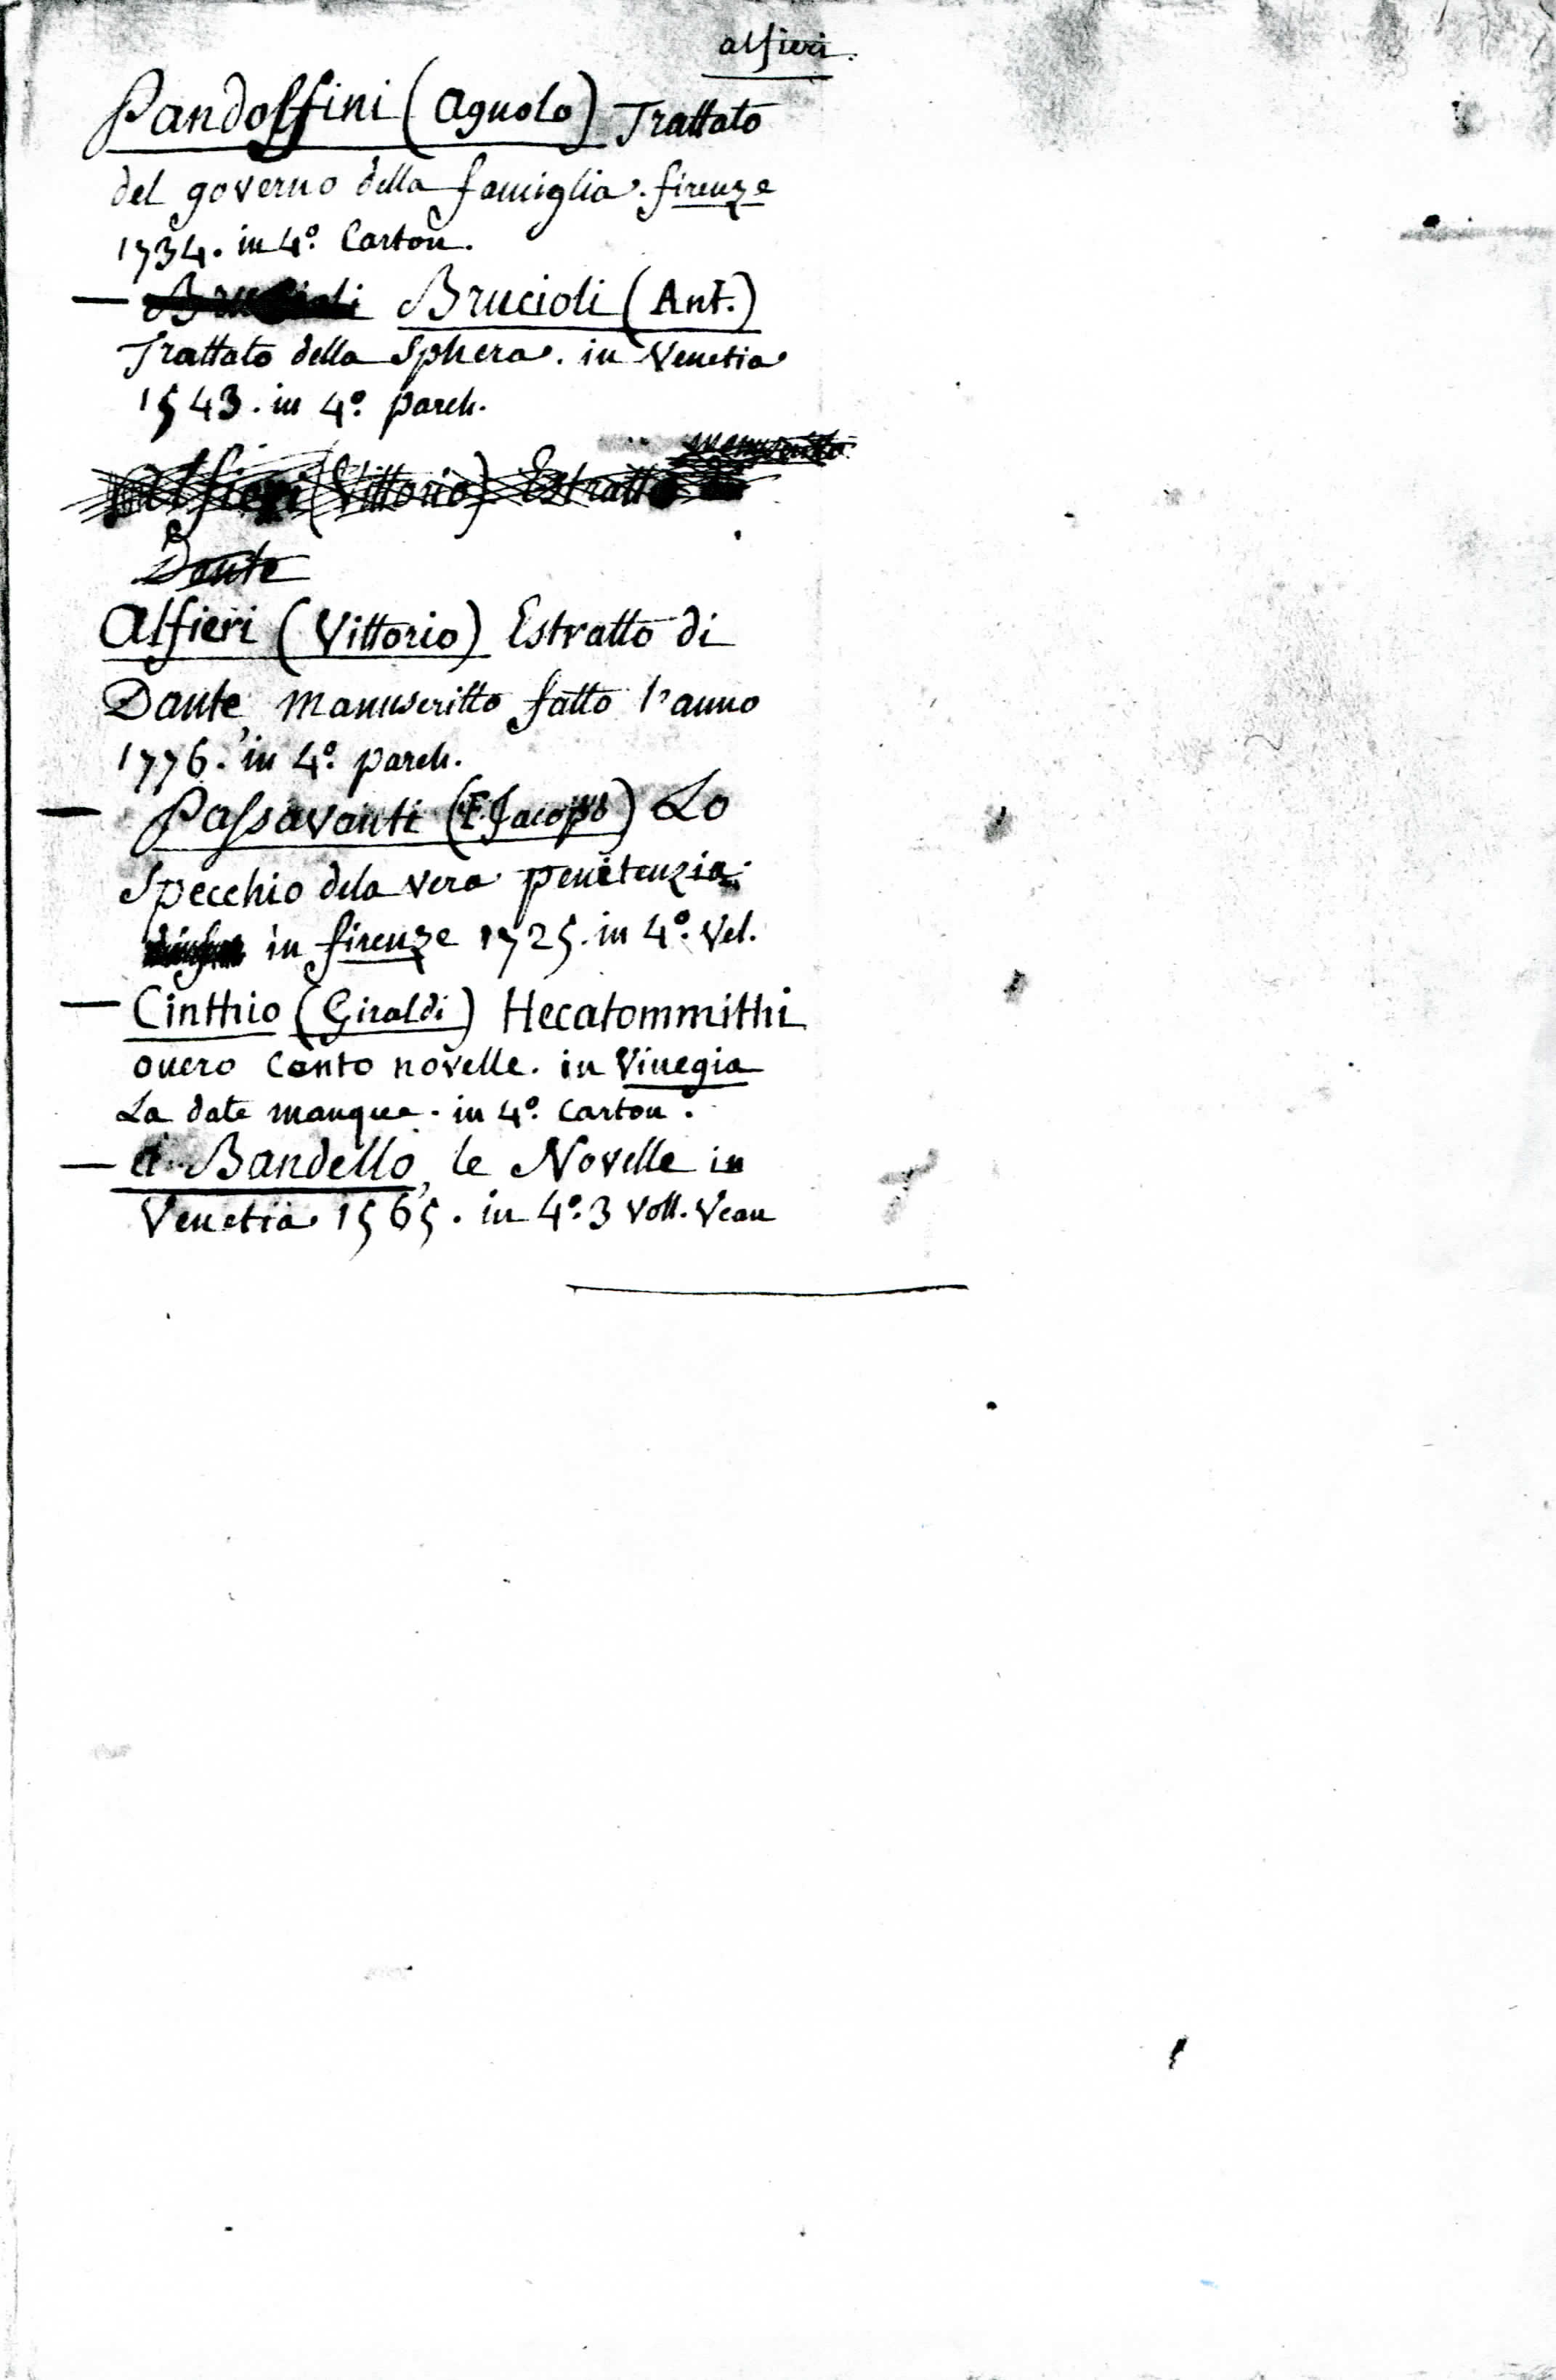 alfieri.
Pandolfini (agnolo) Trattato
del governo della famiglia. firenze
1734. in 4º. Carton.
— Brucioli Brucioli (Ant.)
Trattato della Sphera. in Venetia
1543. in 4º. parch.
manuscritto
Alfieri (Vittorio) Estratto di
Dante
Alfieri (Vittorio) Estratto di
Dante, manuscritto fatto l'anno
1776. in 4º. parch.
— Passavanti (F. Jacopo) Lo
Specchio dela vera penitenzia.
in firenze 1725. in 4º. Vel.
— Cinthio (Giraldi) Hecatommithi
overo Cento novelle. in Vinegia
La date manque. in 4º. Carton.
— Bandello, le Novelle in
Venetia 1565. in 4º. 3 voll. Veau